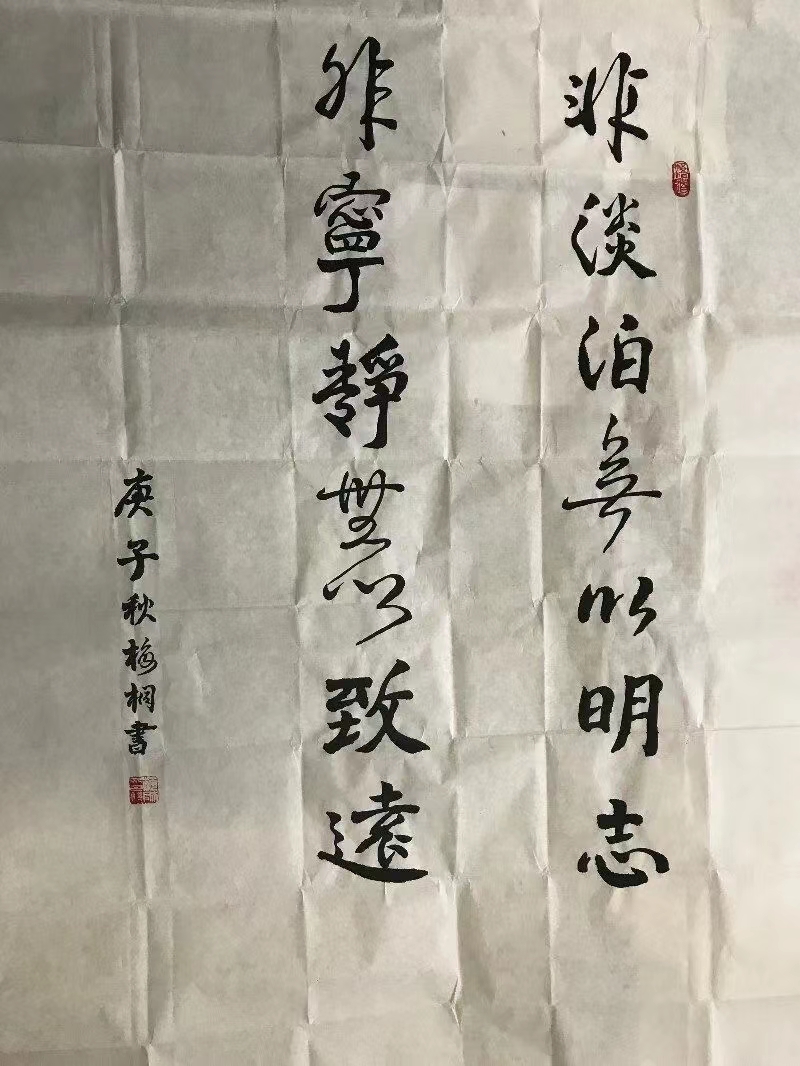 非淡泊無以明志
非寧靜無以致遠
庚子秋梅桐書